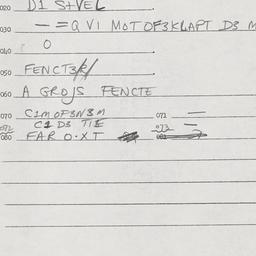 020 D1 S+VEL
030 — = Q V1 MOT OF3KLAPT D3 M
040 O
050 FENCT3
060 A GROJS FENCTE
070 C1M OF3N3M 071 =
072 C1 D3 TIE 073 =
080 FAR O·XT 081